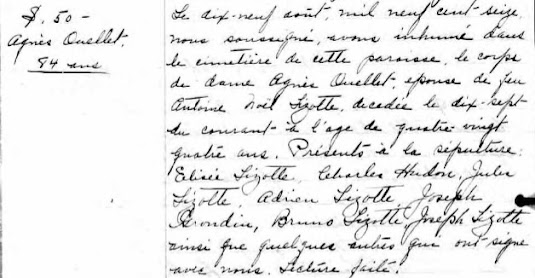 S. 50 -
Agnès Ouellet.
84 ans
Le dix-neuf août, mil neuf cent seize,
nous soussigné, avons inhumé dans
le cimetière de cette paroisse, le corps
de dame Agnès Ouellet, épouse de feu
Antoine Noël Lizotte, décédée le dix-sept
du courant à l'age de quatre-vingt
quatre ans. Présents à la sépulture:
Elisée Lizotte, Charles Hudon, Jules
Lizotte, Adrien Lizotte, Joseph
Brondin, Bruno Lizotte, Joseph Lizotte
ainsi que quelques autres qui ont signé
avec nous. Lecture faite.